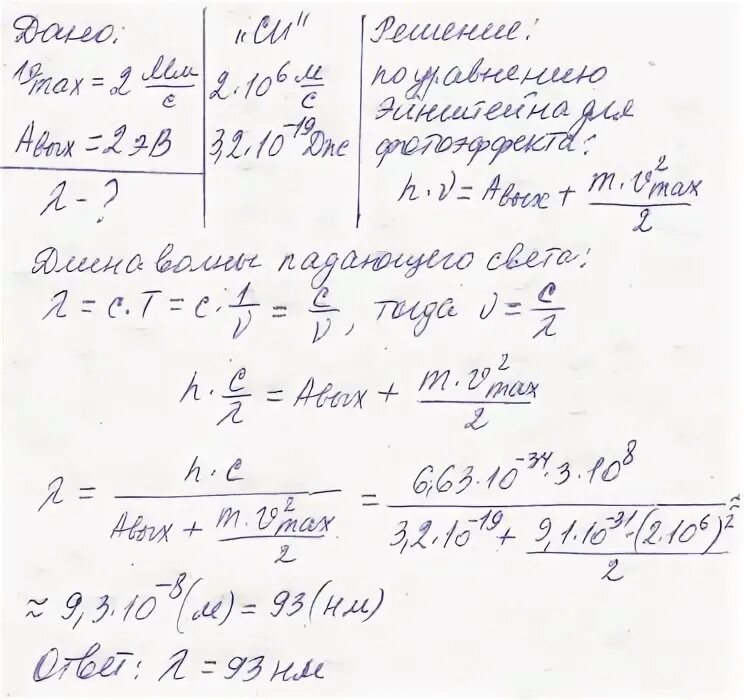 Дано:
υmax = 2 Мм/с
Авых = 2 эВ
λ - ?
„СИ"
2·10⁶ м/с
3,2·10⁻¹⁹ Дж
Решение:
по уравнению
Эйнштейна для
фотоэффекта:
h·ν = Авых + m·υ²max/2
Длина волны падающего света:
λ = c·T = c·1/ν = c/ν, тогда ν = c/λ
h·c/λ = Авых + m·υ²max/2
λ = h·c/(Авых + m·υ²max/2) = 6,63·10⁻³⁴·3·10⁸/(3,2·10⁻¹⁹ + 9,1·10⁻³¹·(2·10⁶)²/2) ≈
≈ 9,3·10⁻⁸ (м) = 93 (нм)
Ответ: λ = 93 нм